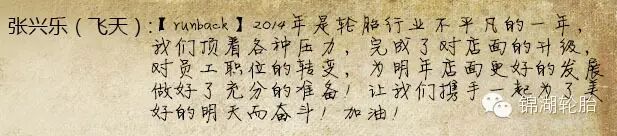 张兴乐（飞天）:【runback】2014年是轮胎行业不平凡的一年，
我们顶着各种压力，完成了对店面的升级，
对员工职位的转变，为明年店面更好的发展
做好了充分的准备！让我们携手一起为了美
好的明天而奋斗！加油！
锦湖轮胎